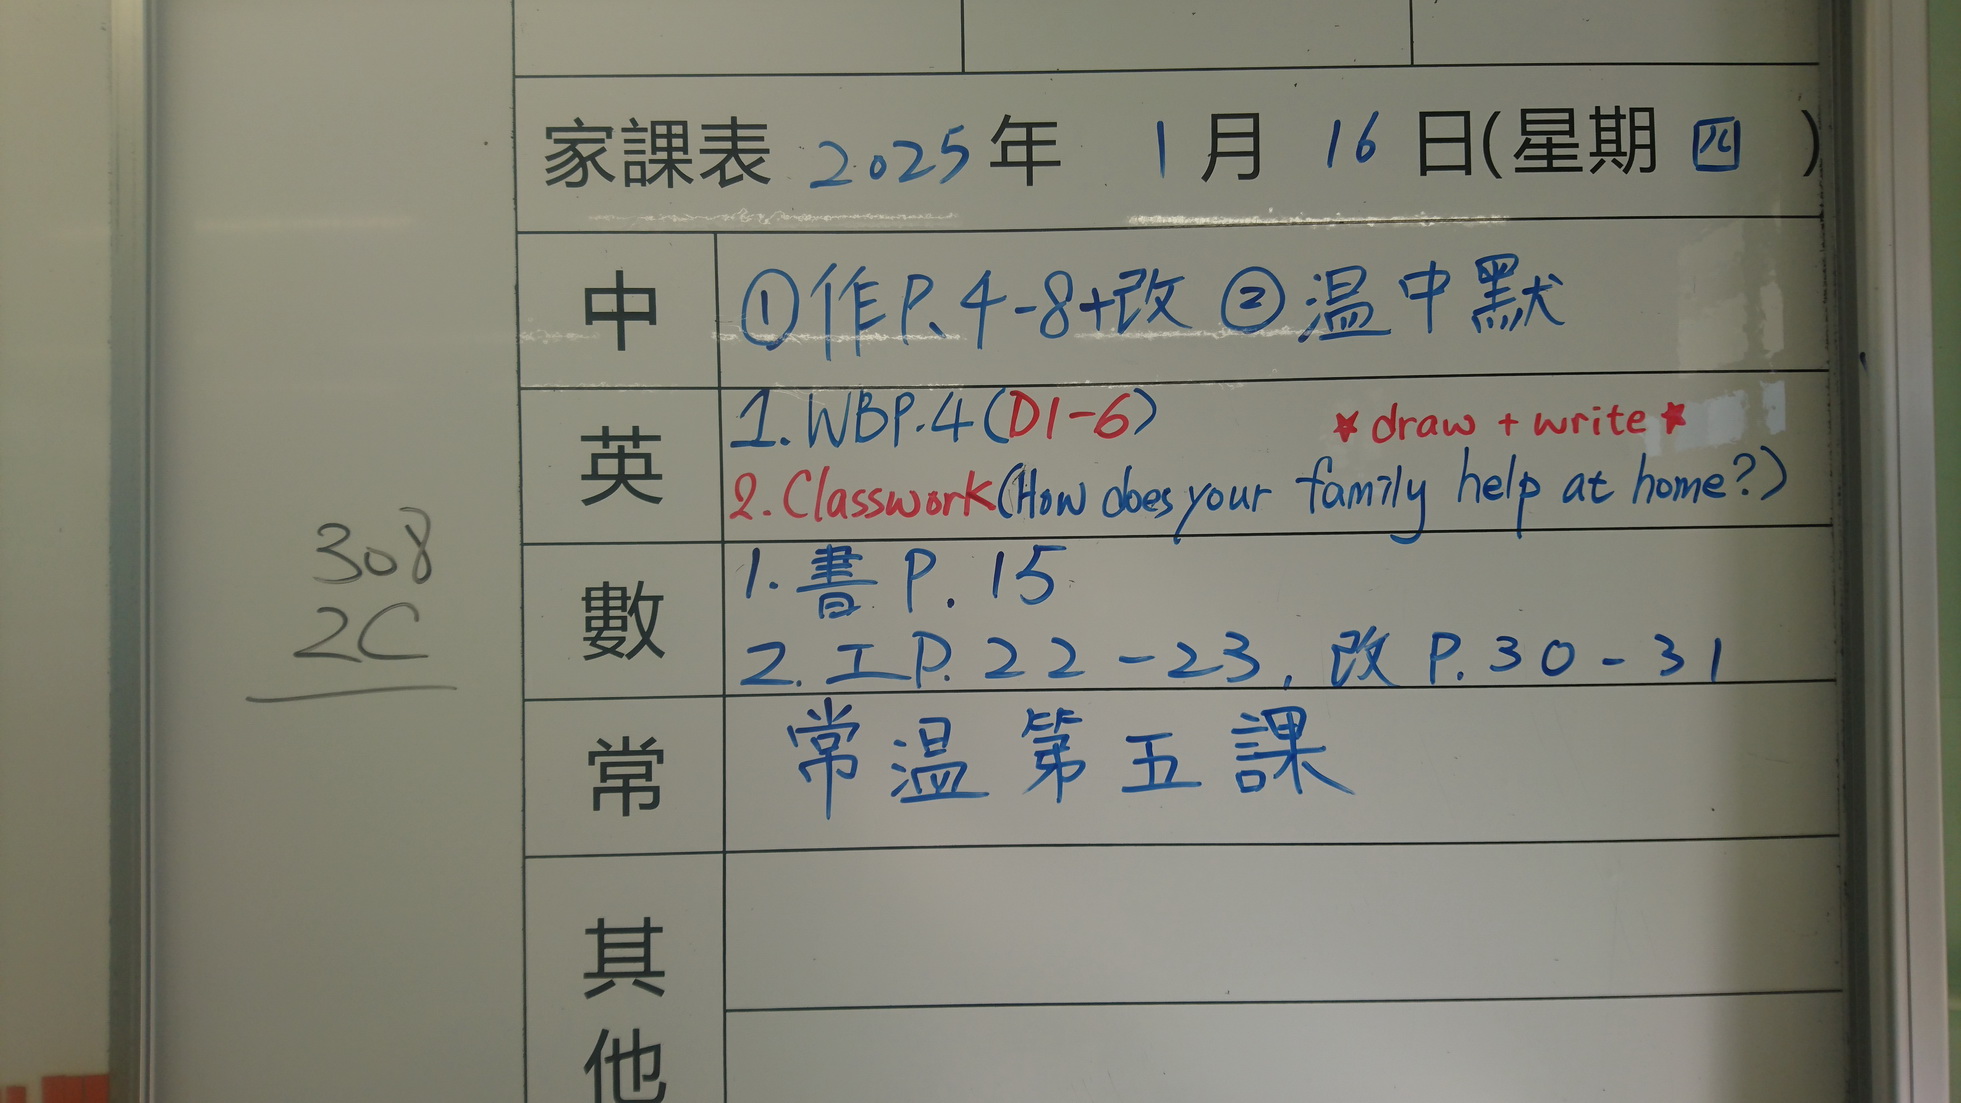 家課表 2025年 1月16日(星期四)
中 ①作P.4-8+改 ②温中默
英 1.WBP.4(D1-6) *draw + write*
2.Classwork(How does your family help at home?)
數 1.書P.15
2.工P.22-23,改P.30-31
常 常温第五課
其他
308
2C